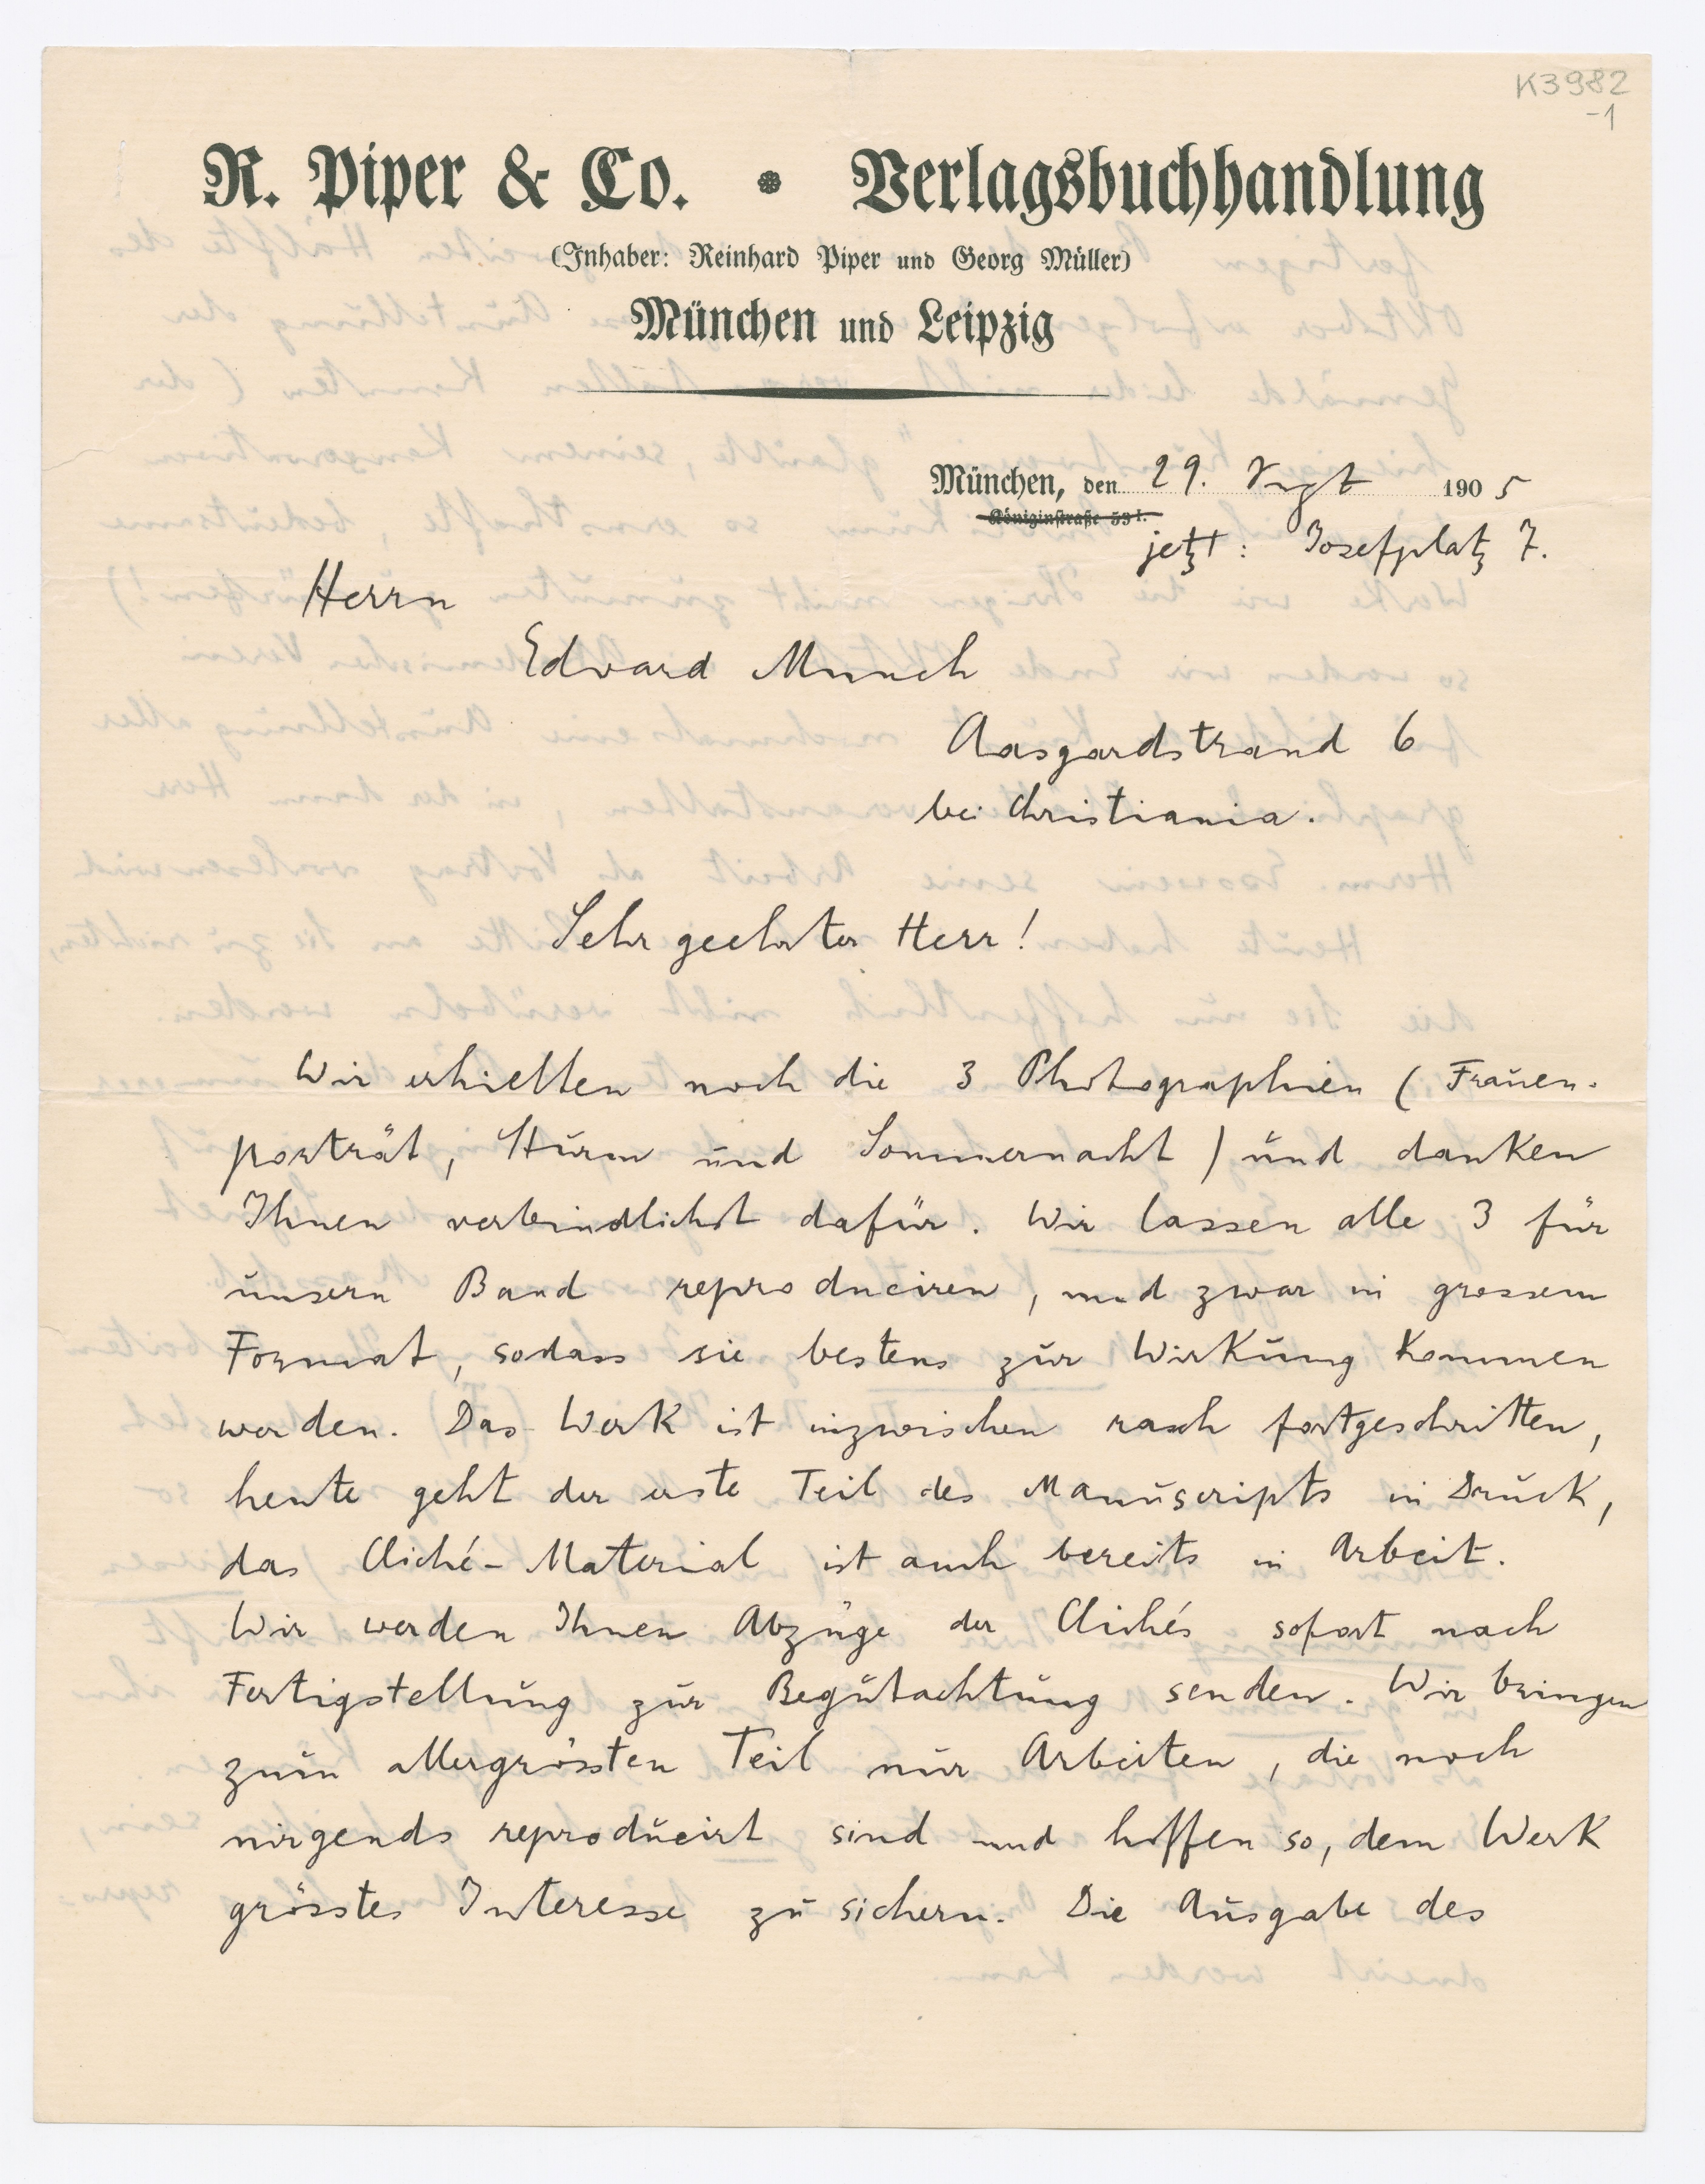 K3982
-1
R. Piper & Co. • Verlagsbuchhandlung
(Inhaber: Reinhard Piper und Georg Müller)
München und Leipzig
München, den 29. 1905
Königinstraße 59 I.
jetzt: Josefplatz 7.
Herrn
Edvard Munch
Aasgardstrand 6
bei Christiania.
Sehr geehrter Herr!
Wir erhielten noch die 3 Photographien (Frauen-
porträt, Sturm und Sommernacht) und danken
Ihnen verbindlichst dafür. Wir lassen alle 3 für
unsern Band reproduciren, und zwar in grossem
Format, sodass sie bestens zur Wirkung kommen
werden. Das Werk ist inzwischen rasch fortgeschritten,
heute geht der erste Teil des Manuscripts in Druck,
das Cliché-Material ist auch bereits in Arbeit.
Wir werden Ihnen Abzüge der Clichés sofort nach
Fertigstellung zur Begutachtung senden. Wir bringen
zum allergrössten Teil nur Arbeiten, die noch
nirgends reproducirt sind und hoffen so, dem Werk
grösstes Interesse zu sichern. Die Ausgabe des